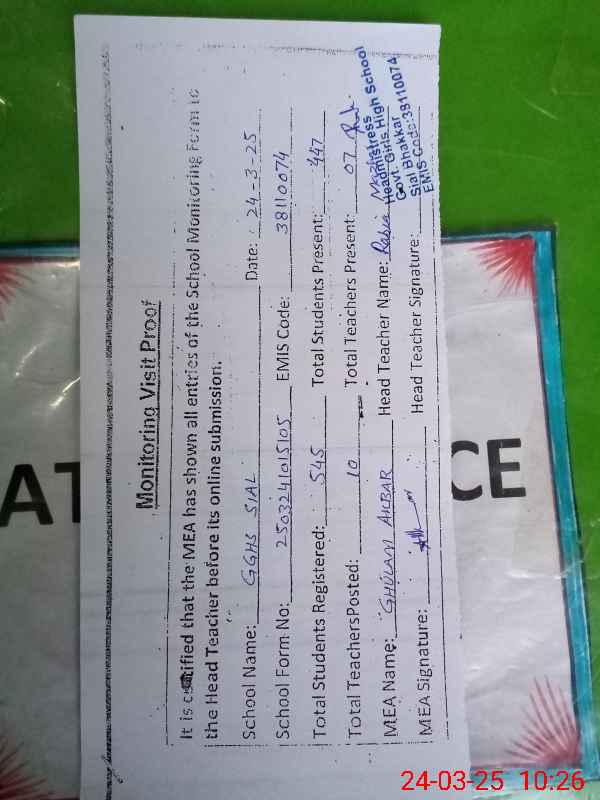 Monitoring Visit Proof
It is certified that the MEA has shown all entries of the School Monitoring Form to
the Head Teacher before its online submission.
School Name: GGHS SIAL Date: 24-3-25
School Form No: 2503241015105 EMIS Code: 38110074
Total Students Registered: 545 Total Students Present: 447
Total TeachersPosted: 10 Total Teachers Present: 07
MEA Name: GHULAM AKBAR Head Teacher Name: Rabia
MEA Signature: Head Teacher Signature:
Headmistress
Govt. Girls High School
Sial Bhakkar
EMIS Code:38110074
AT
CE
24-03-25 10:26